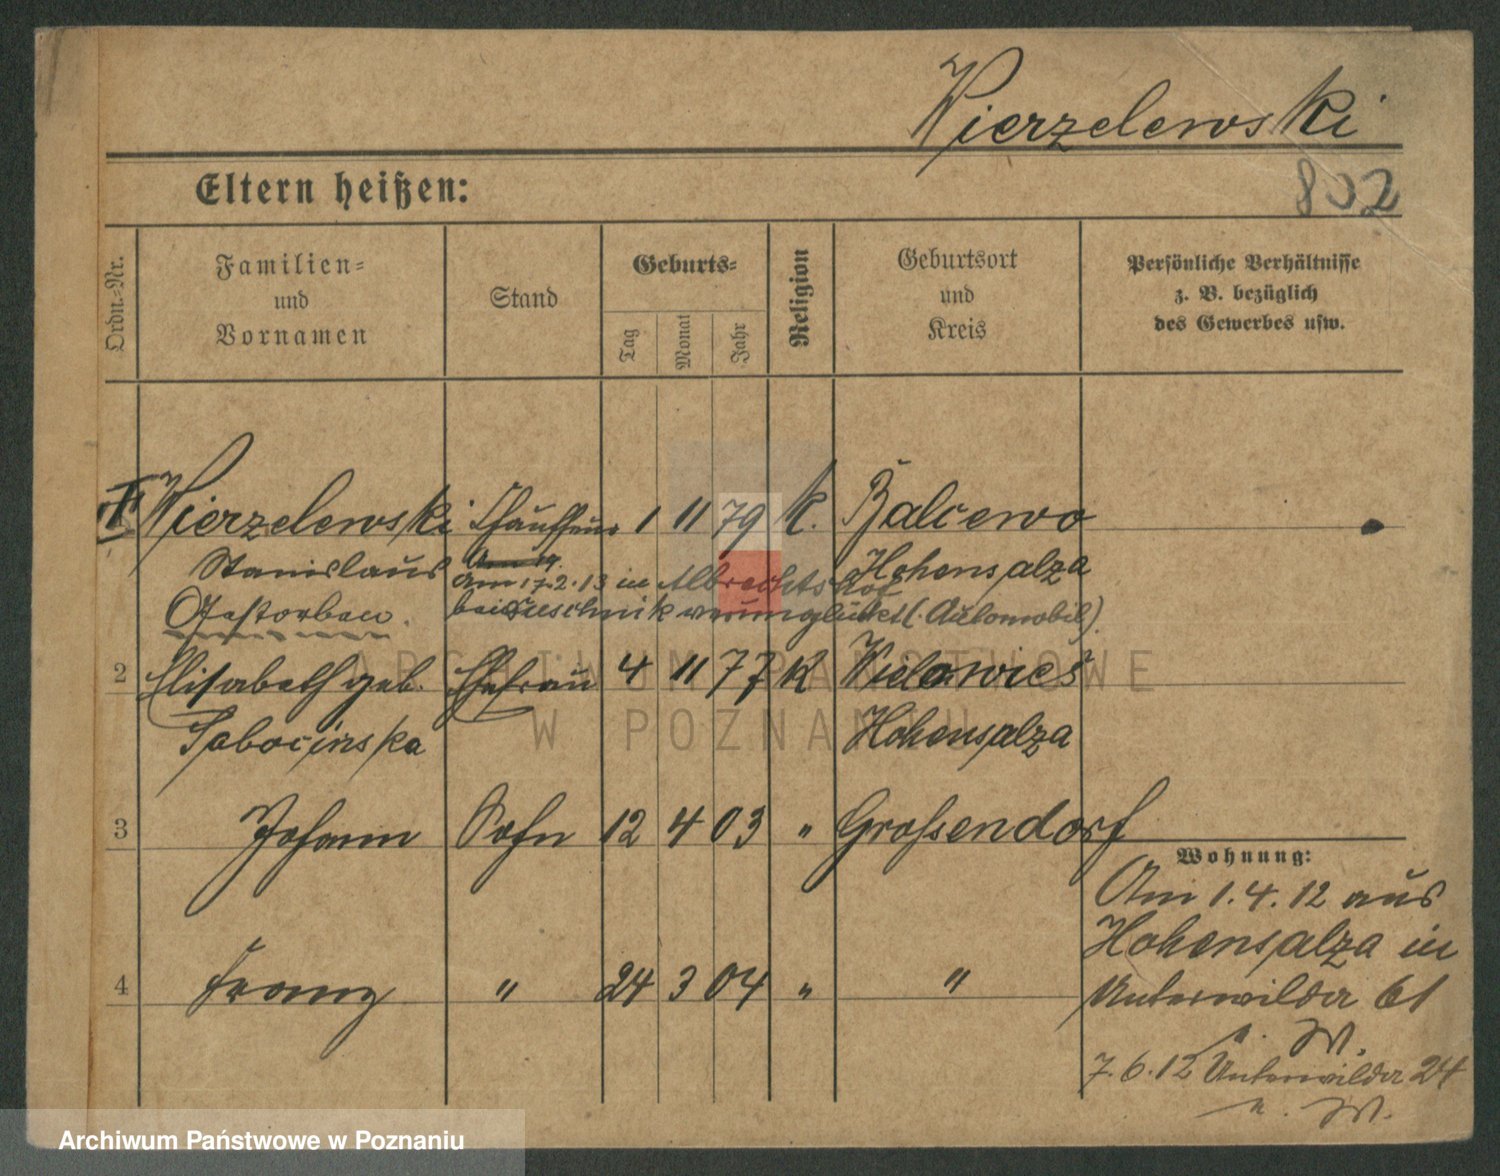 Wierzelewski
802
Eltern heißen:
Ordn.-Nr.
Familien-
und
Vornamen
Stand
Geburts-
Tag
Monat
Jahr
Religion
Geburtsort
und
Kreis
Persönliche Verhältnisse
z. B. bezüglich
des Gewerbes usw.
1 Wierzelewski Chauffeur 1 11 79 k. Balcewo
Stanislaus Hohensalza
Am 17.2.13 in Albrechtshof
Gestorben. verunglückt (Automobil).
2 Elisabeth geb. Ehefrau 4 11 77 K Wielowies
Sobocinska Hohensalza
3 Johann Sohn 12 4 03 " Grossendorf
Wohnung:
Am 1.4.12 aus
Hohensalza in
4 Franz " 24 3 04 " "
Unterwilda 61
b. W.
7.6.12 Unterwilda 24
b. W.
ARCHIWUM PAŃSTWOWE
W POZNANIU
Archiwum Państwowe w Poznaniu